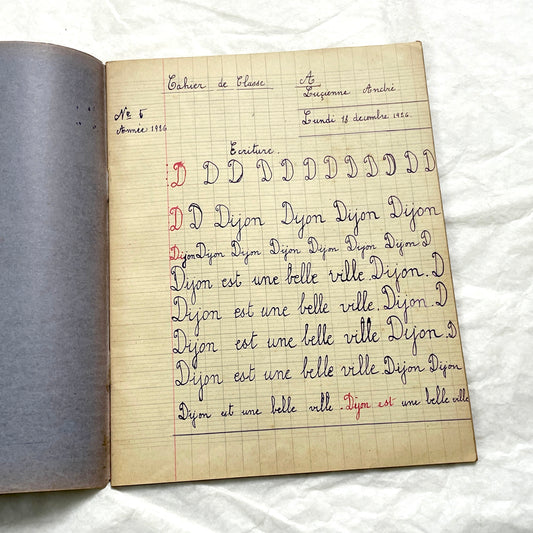 Cahier de Classe
A
Luçienne André
No 5
Année 1926
Lundi 13 décembre 1926.
Ecriture.
D D D D D D D D D D D
D D Dijon Dyon Dijon Dijon
Dijon Dyon Dijon Dijon Dijon Dijon Dijon D
Dijon est une belle ville. Dijon. D
Dijon est une belle ville. Dijon. D
Dijon est une belle ville Dijon. D
Dijon est une belle ville. Dijon Dijon
Dijon est une belle ville. Dijon est une belle ville